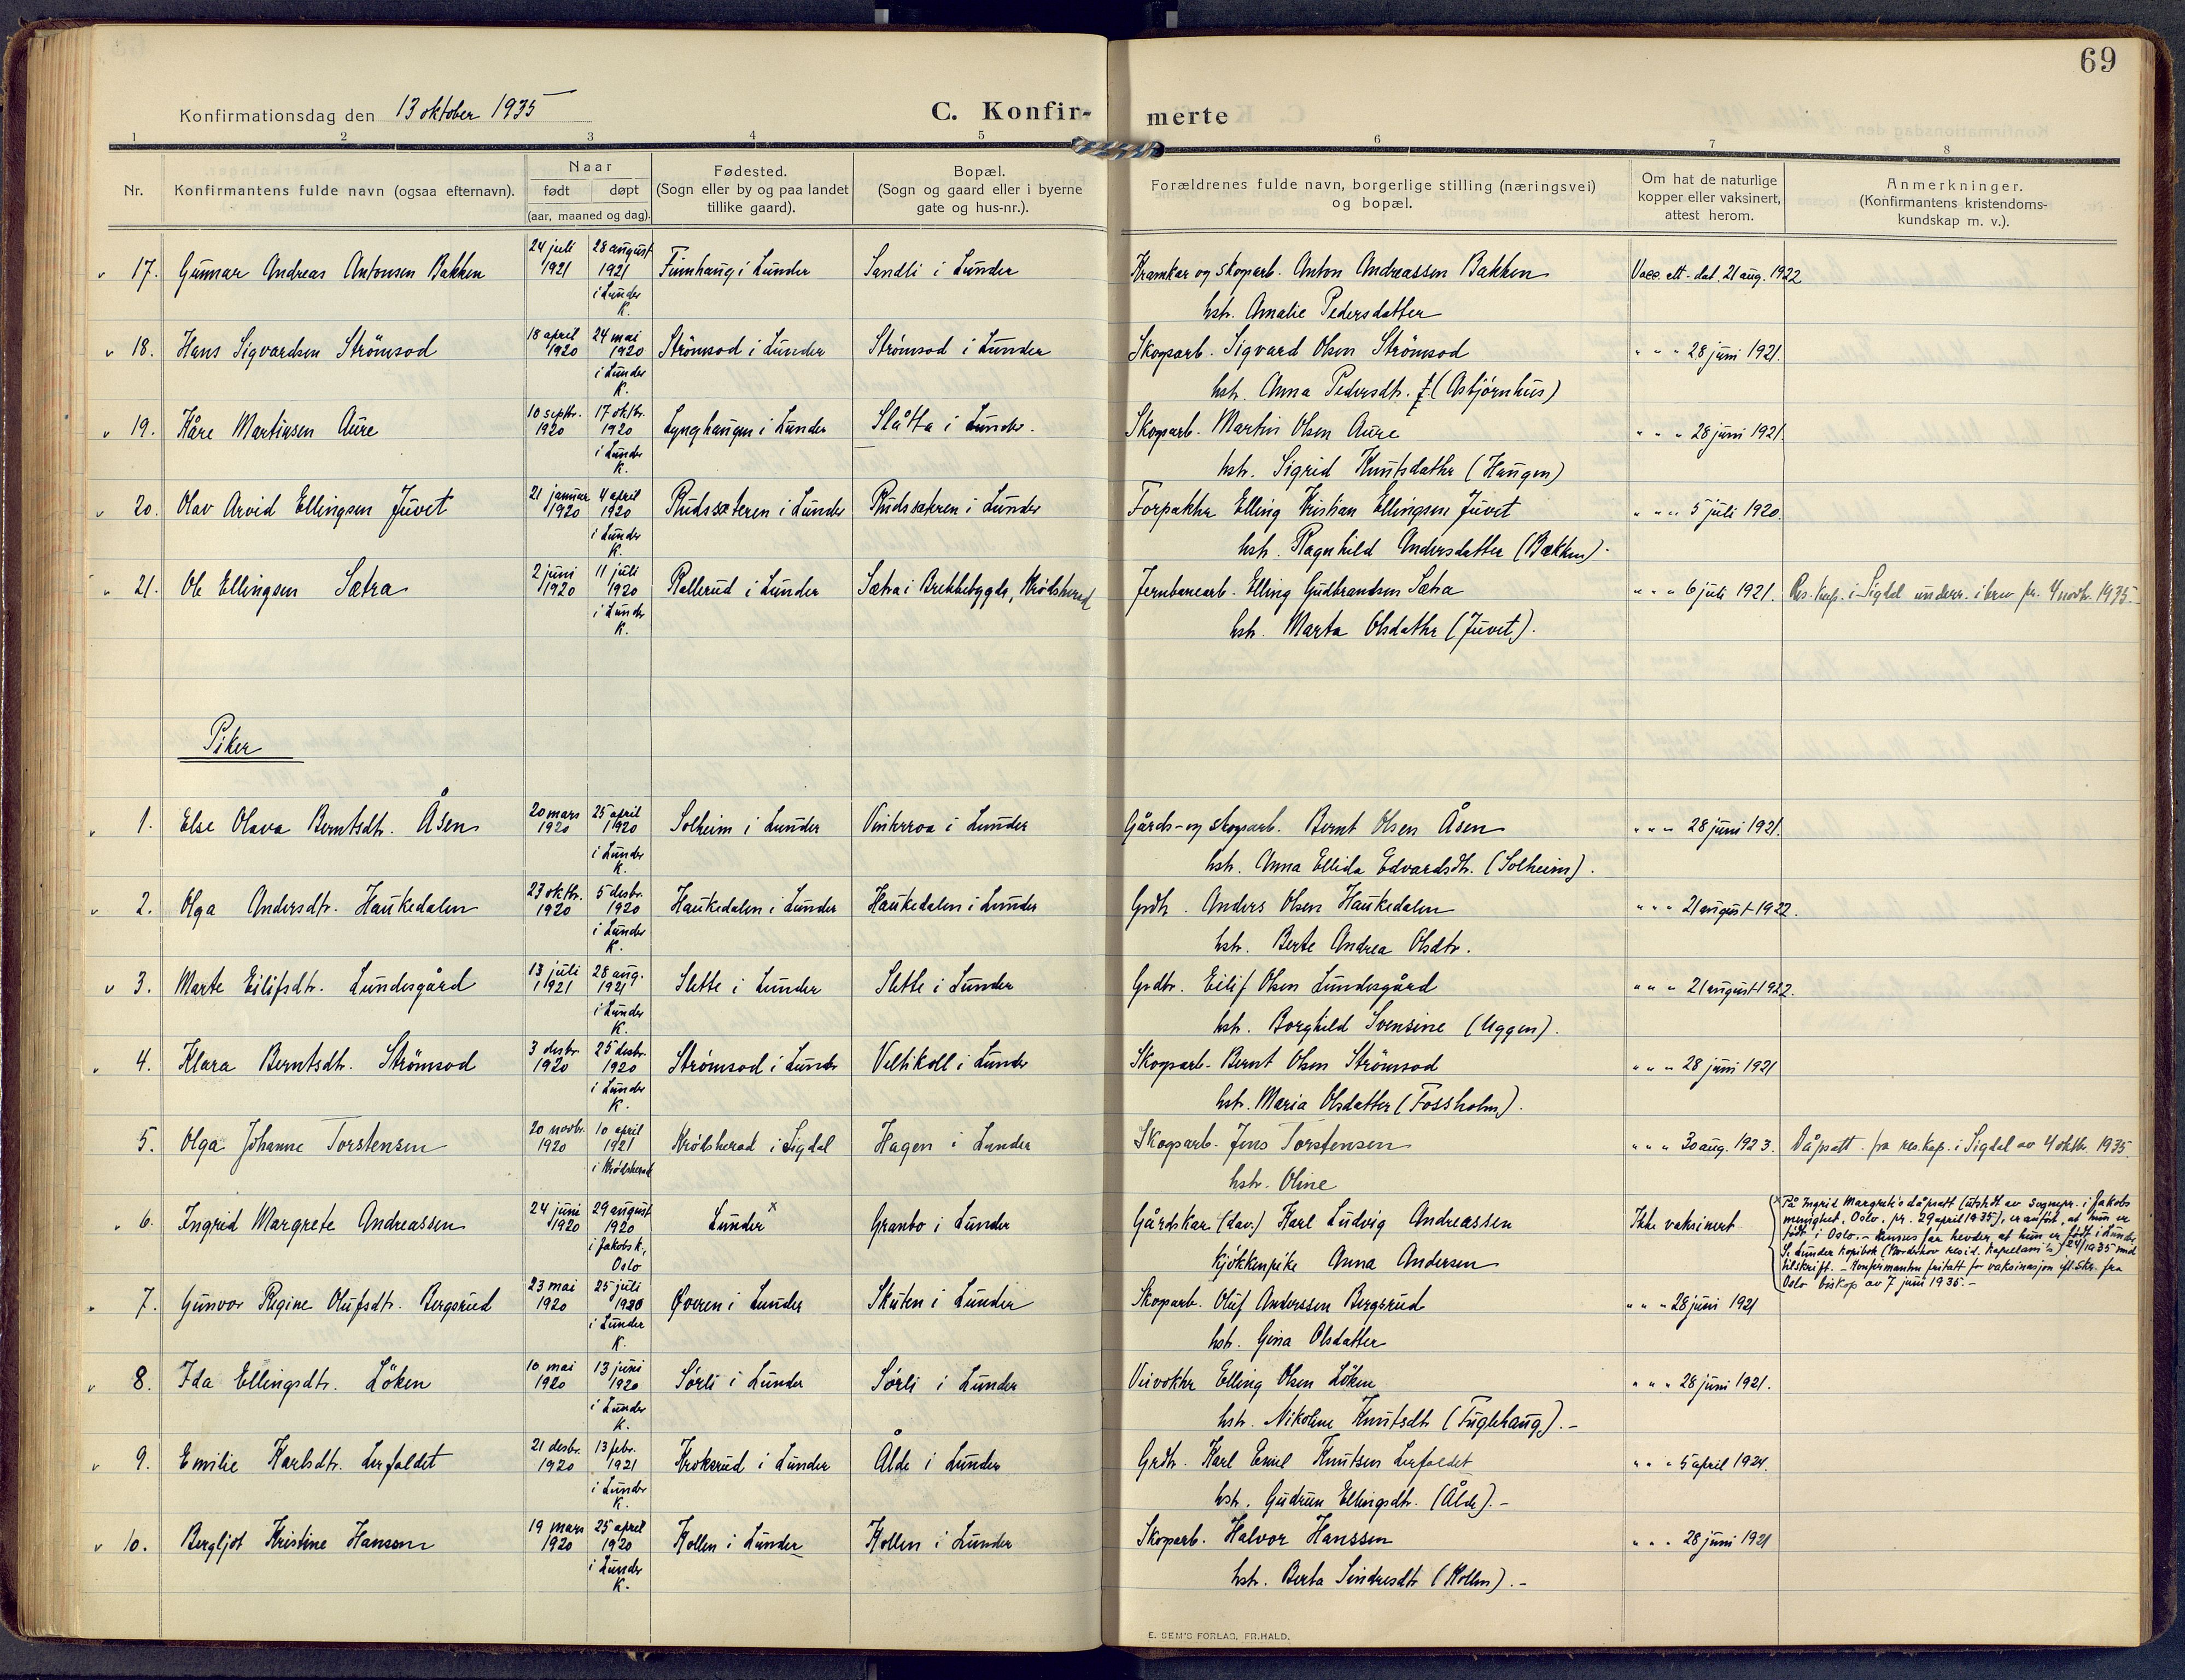 69
Konfirmationsdag den 13 oktober 1935
C. Konfirmerte
1 2 3 4 5 6 7 8
Nr.
Konfirmantens fulde navn (ogsaa efternavn).
Naar
født døpt
(aar, maaned og dag).
Fødested.
(Sogn eller by og paa landet
tillike gaard).
Bopæl.
(Sogn og gaard eller i byerne
gate og hus-nr.).
Forældrenes fulde navn, borgerlige stilling (næringsvei)
og bopæl.
Om hat de naturlige
kopper eller vaksinert,
attest herom.
Anmerkninger.
(Konfirmantens kristendoms-
kundskap m. v.).
v 17. Gunnar Andreas Antonsen Bakken 24 juli 1921 28 august 1921 i Lunder K. Finnhaug i Lunder Sandli i Lunder Kramkar og skogarb. Anton Andreassen Bakken Vacc. att. dat. 21 aug. 1922
hstr. Amalie Pedersdatter
v 18. Hans Sigvardsen Strömsod 18 april 1920 24 mai 1920 i Lunder K. Strömsod i Lunder Strömsod i Lunder Skogsarb. Sigvard Olsen Strömsod " " " 28 juni 1921.
hstr. Anna Pedersdtr. f. (Asbjørnhus)
v 19. Kåre Martinsen Aure 10 septbr. 1920 17 oktbr. 1920 i Lunder K. Lynghaugen i Lunder Slåtta i Lunder. Skogsarb. Martin Olsen Aure " " " 28 juni 1921.
hstr. Sigrid Knutsdatter (Haugen)
v 20. Olav Arvid Ellingsen Juvet 21 januar 1920 4 april 1920 i Lunder K. Rudssæteren i Lunder Rudssæteren i Lunder Forpakter Elling Kristian Ellingsen Juvet " " " 5 juli 1920.
hstr. Ragnhild Andersdatter (Bækken).
" 21. Ole Ellingsen Sætra 2 juni 1920 11 juli 1920 i Lunder K. Rallerud i Lunder Sætra i Brekkebygda, Krödsherad Jernbanearb. Elling Gudbrandsen Sætra " " " 6 juli 1921. Res. kap. i Sigdal underr. i brev pr. 4 novbr. 1935.
hstr. Marta Olsdatter (Juvet).
Piker
v 1. Else Olava Berntsdtr. Åsen 20 mars 1920 25 april 1920 i Lunder K. Solheim i Lunder Vinterroa i Lunder Gårds- og skogsarb. Bernt Olsen Åsen " " " 28 juni 1921.
hstr. Anna Ellida Edvardsdtr. (Solheim).
v 2. Olga Andersdtr. Haukedalen 23 oktbr. 1920 5 desbr. 1920 i Lunder K. Haukedalen i Lunder Haukedalen i Lunder Grdbr. Anders Olsen Haukedalen " " " 21 august 1922.
hstr. Berte Andrea Olsdtr.
v 3. Marte Eilifsdtr. Lundesgård 13 juli 1921 28 aug. 1921 i Lunder K. Slette i Lunder Slette i Lunder Grdbr. Eilif Olsen Lundesgård " " " 21 august 1922.
hstr. Borghild Svensine (Uggen).
v 4. Klara Berntsdtr. Strömsod 3 desbr 1920 25 desbr. 1920 i Lunder K. Strömsod i Lunder Veltikoll i Lunder Skogsarb. Bernt Olsen Strömsod " " " 28 juni 1921
hstr. Maria Olsdatter (Fossholm).
5. Olga Johanne Torstensen 20 novbr. 1920 10 april 1921 i Krödsherad Krödsherad i Sigdal Hagen i Lunder Skogsarb. Jens Torstensen " " " 30 aug. 1923. Dåpsatt. fra res. kap. i Sigdal av 4 oktbr. 1935.
hstr. Oline
" 6. Ingrid Margrete Andreassen 24 juni 1920 29 august 1920 i Jakobs k., Oslo Lunder x Granbo i Lunder Gårdskar (dav.) Karl Ludvig Andreassen Ikke vaksinert
kjökkenpike Anna Andersen
x På Ingrid Margrete's dåpsatt. (utstedt av sognepr. i Jakobs
menighet, Oslo, pr. 29 april 1935), er anført, at hun er
født i Oslo. - Hennes far hevder at hun er født i Lunder
S. Lunder kopibok (Nordrehov resid. kapellani's) 24/10 35 med
tilskrift. - Konfirmanten fritatt for vaksinasjon ifl. skr. fra
Oslo biskop av 7 juni 1935. -
" 7. Gunvor Regine Olufsdtr. Bergsrud 23 mai 1920 25 juli 1920 i Lunder K. Øveren i Lunder Skuten i Lunder Skogsarb. Oluf Anderssen Bergsrud " " " 28 juni 1921
hstr. Gina Olsdatter
v 8. Ida Ellingsdtr. Löken 10 mai 1920 13 juni 1920 i Lunder K. Sørli i Lunder Sørli i Lunder Veivokter Elling Olsen Löken " " " 28 juni 1921.
hstr. Nikoline Knutsdtr (Fuglehaug). -
v 9. Emilie Karlsdtr. Lerfaldet 21 desbr. 1920 13 febr. 1921 i Lunder K. Kroksrud i Lunder Ålde i Lunder Grdbr. Karl Emil Knutsen Lerfaldet " " " 5 april 1924.
hstr. Gudrun Ellingsdtr. (Ålde). -
v 10. Bergljot Kristine Hanssen 19 mars 1920 25 april 1920 i Lunder K. Kollen i Lunder Kollen i Lunder Skogsarb. Halvor Hanssen " " " 28 juni 1921
hstr. Berta Sindresdtr (Kollen). -
E. SEM'S FORLAG, FR.HALD.